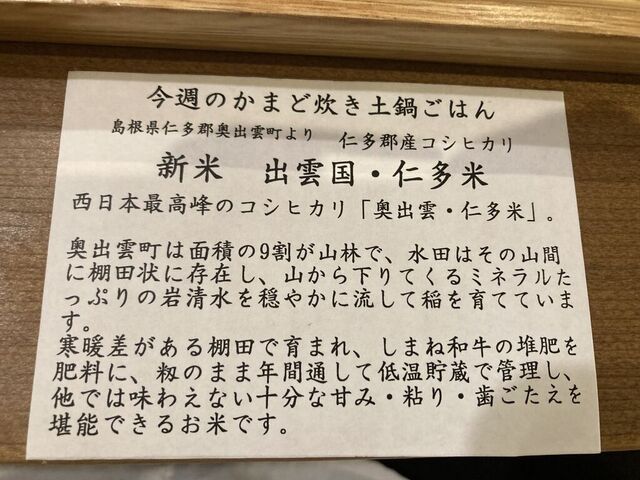 今週のかまど炊き土鍋ごはん
島根県仁多郡奥出雲町より　仁多郡産コシヒカリ
新米　出雲国・仁多米
西日本最高峰のコシヒカリ「奥出雲・仁多米」。
奥出雲町は面積の9割が山林で、水田はその山間
に棚田状に存在し、山から下りてくるミネラルた
っぷりの岩清水を穏やかに流して稲を育てていま
す。
寒暖差がある棚田で育まれ、しまね和牛の堆肥を
肥料に、籾のまま年間通して低温貯蔵で管理し、
他では味わえない十分な甘み・粘り・歯ごたえを
堪能できるお米です。